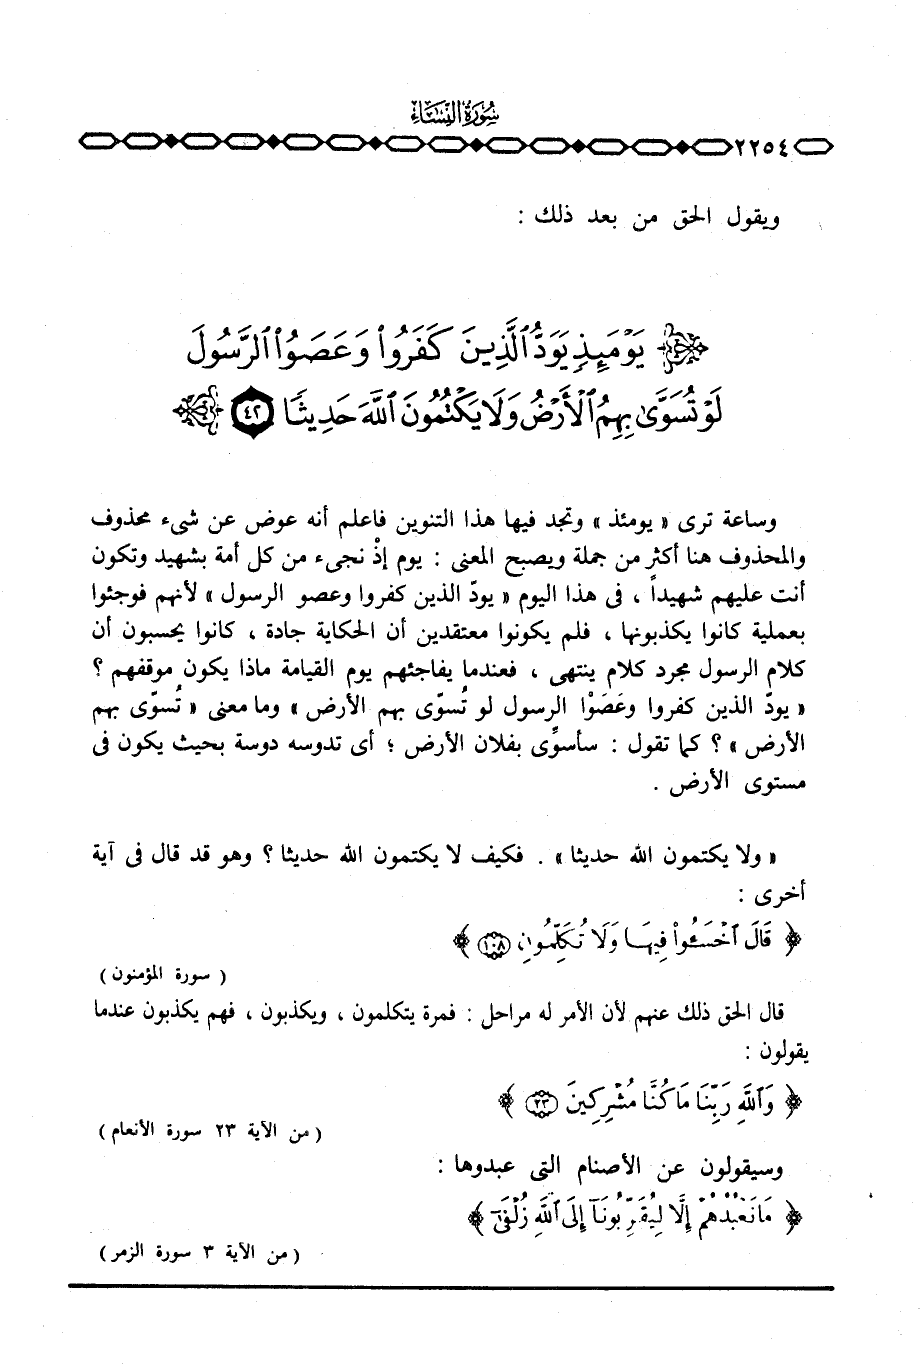 سُورَةُ النِّسَاءِ
٢٢٥٤
ويقول الحق من بعد ذلك :
يَوْمَئِذٍ يَوَدُّ ٱلَّذِينَ كَفَرُوا۟ وَعَصَوُا۟ ٱلرَّسُولَ
لَوْ تُسَوَّىٰ بِهِمُ ٱلْأَرْضُ وَلَا يَكْتُمُونَ ٱللَّهَ حَدِيثًا ٤٢
وساعة ترى « يومئذ » وتجد فيها هذا التنوين فاعلم أنه عوض عن شىء محذوف
والمحذوف هنا أكثر من جملة ويصبح المعنى : يوم إذْ نجىء من كل أمة بشهيد وتكون
أنت عليهم شهيداً ، فى هذا اليوم « يودّ الذين كفروا وعصو الرسول » لأنهم فوجئوا
بعملية كانوا يكذبونها ، فلم يكونوا معتقدين أن الحكاية جادة ، كانوا يحسبون أن
كلام الرسول مجرد كلام ينتهى ، فعندما يفاجئهم يوم القيامة ماذا يكون موقفهم ؟
« يودّ الذين كفروا وعَصَوْا الرسول لو تُسوّى بهم الأرض » وما معنى « تُسوّى بهم
الأرض » ؟ كما تقول : سأسوِّى بفلان الأرض ؛ أى تدوسه دوسة بحيث يكون فى
مستوى الأرض .
« ولا يكتمون الله حديثا » . فكيف لا يكتمون الله حديثا ؟ وهو قد قال فى آية
أخرى :
﴿ قَالَ ٱخْسَـُٔوا۟ فِيهَا وَلَا تُكَلِّمُونِ ١٠٨ ﴾
( سورة المؤمنون )
قال الحق ذلك عنهم لأن الأمر له مراحل : فمرة يتكلمون ، ويكذبون ، فهم يكذبون عندما
يقولون :
﴿ وَٱللَّهِ رَبِّنَا مَا كُنَّا مُشْرِكِينَ ٢٣ ﴾
( من الآية ٢٣ سورة الأنعام )
وسيقولون عن الأصنام التى عبدوها :
﴿ مَا نَعْبُدُهُمْ إِلَّا لِيُقَرِّبُونَآ إِلَى ٱللَّهِ زُلْفَىٰٓ ﴾
( من الآية ٣ سورة الزمر )